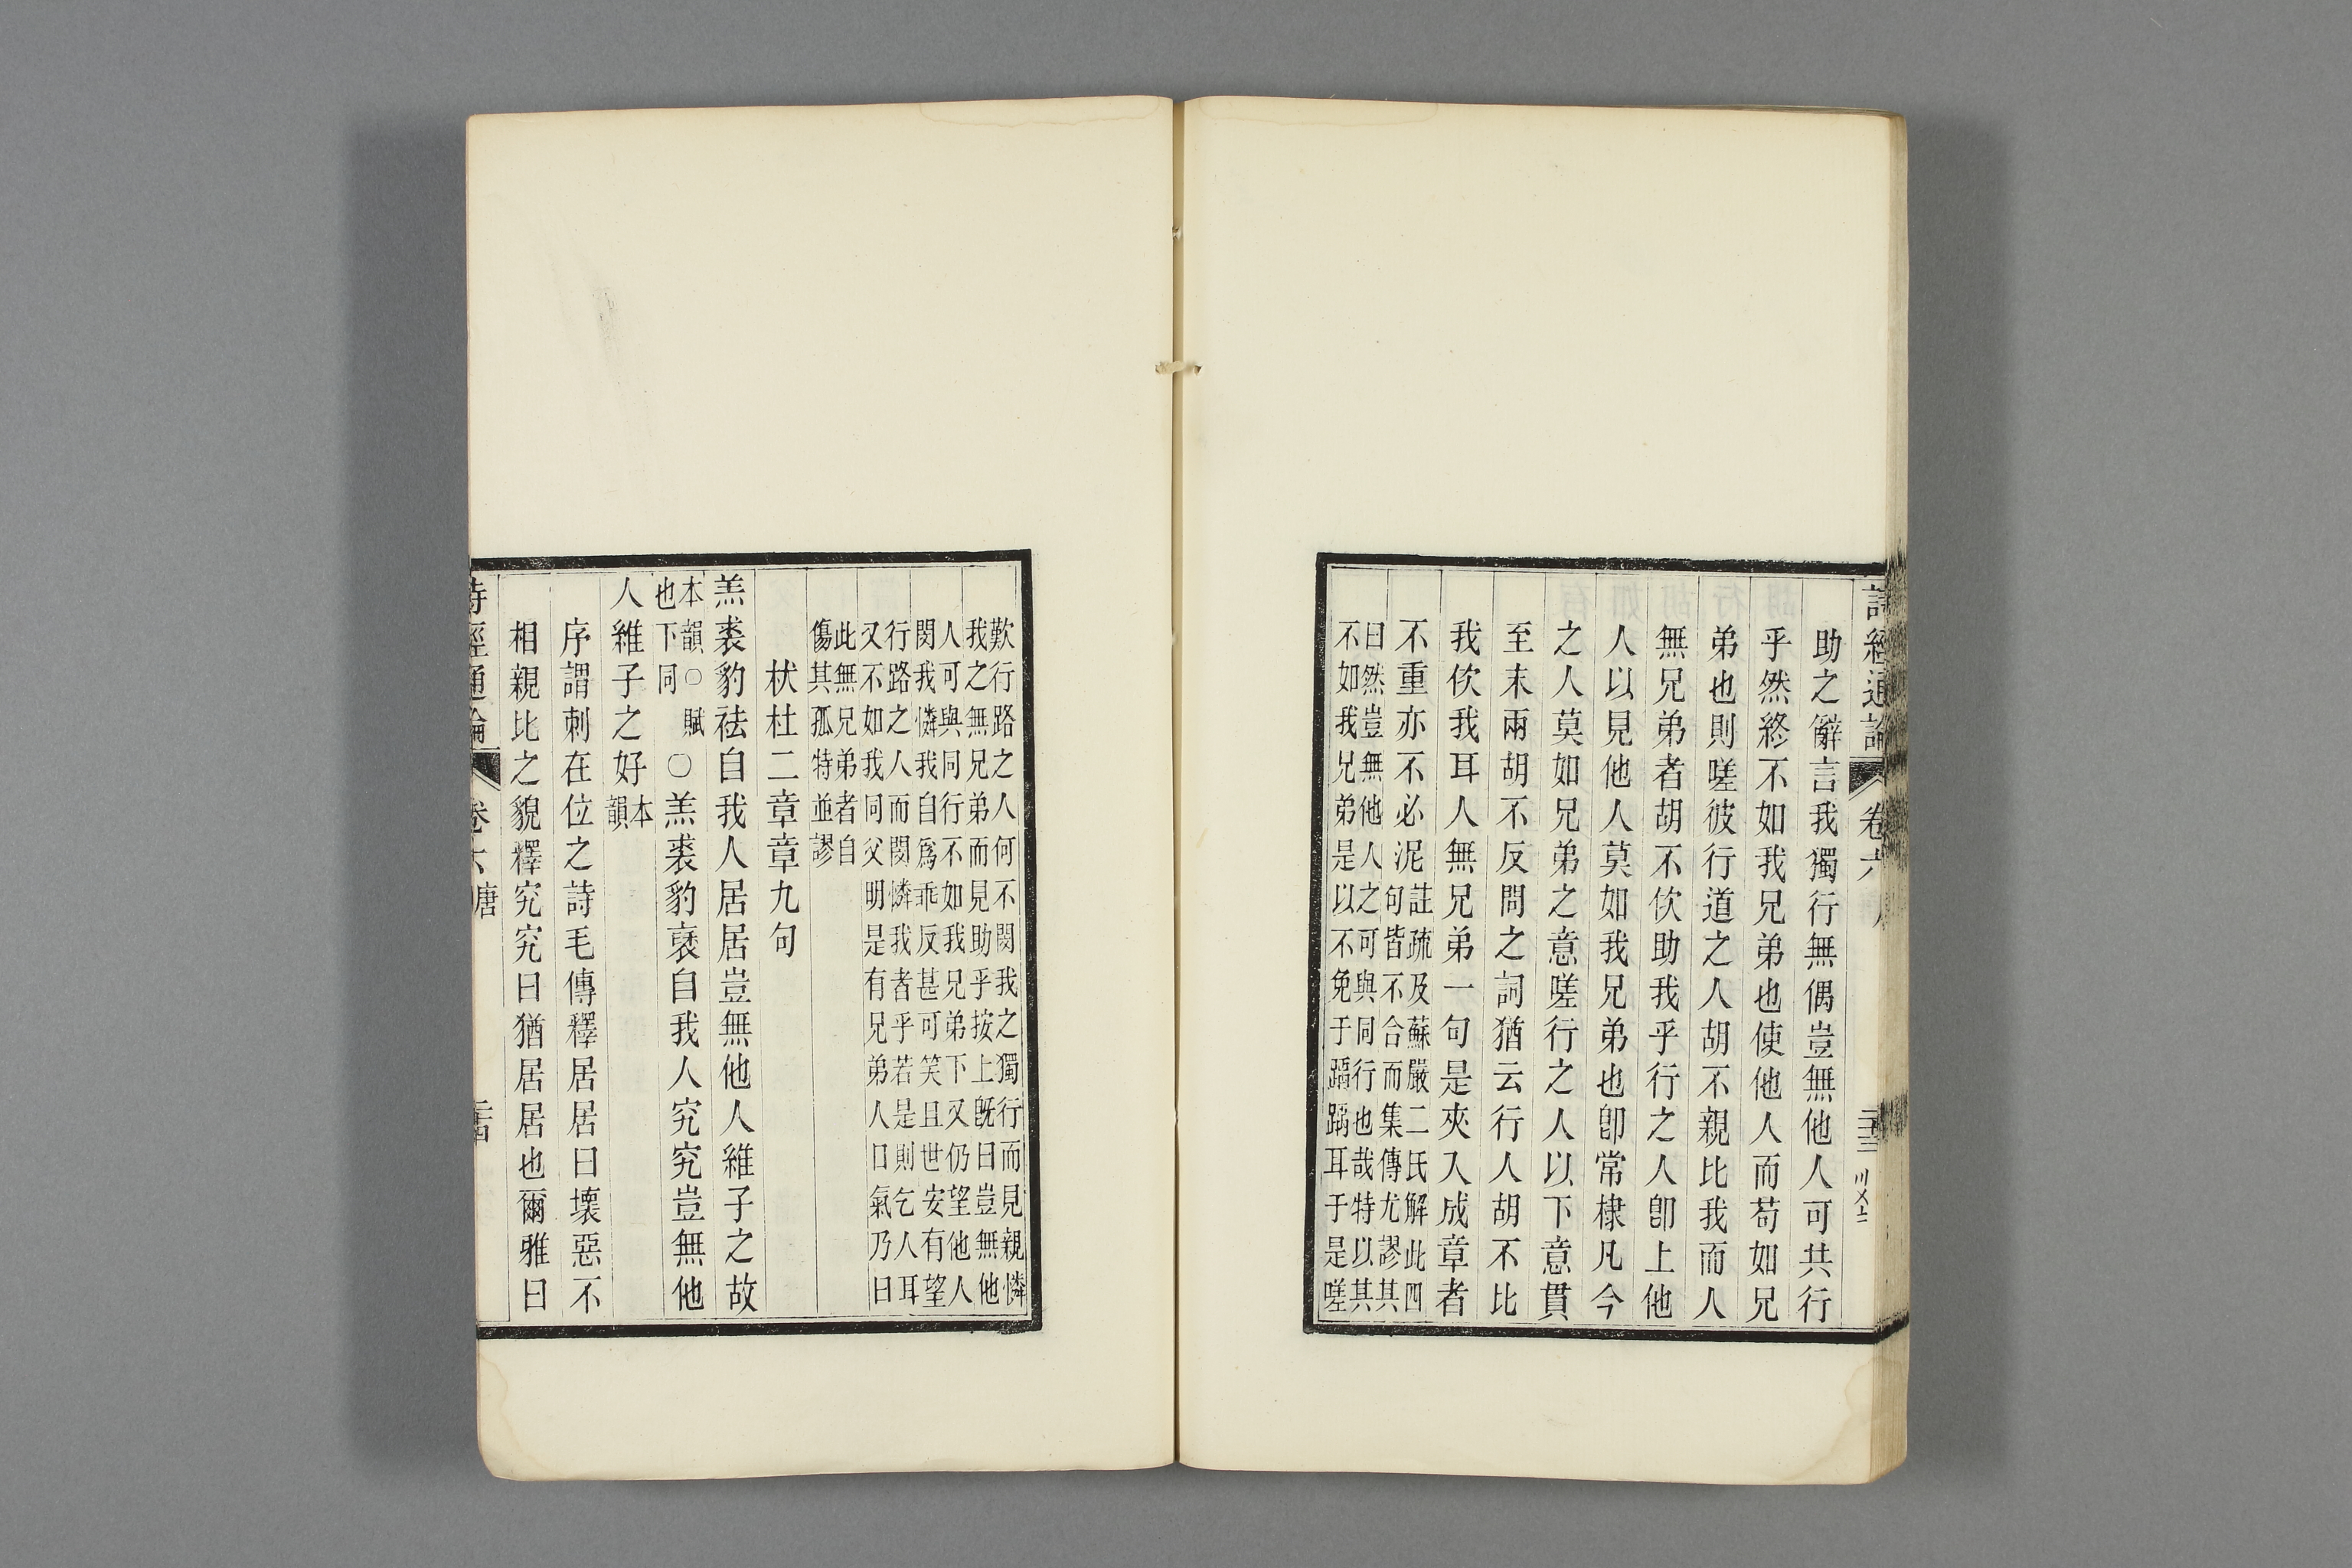 詩經通論 卷六 二十三
助之辭言我獨行無偶豈無他人可共行
乎然終不如我兄弟也使他人而苟如兄
弟也則嗟彼行道之人胡不親比我而人
無兄弟者胡不佽助我乎行之人卽上他
人以見他人莫如我兄弟也卽常棣凡今
之人莫如兄弟之意嗟行之人以下意貫
至末兩胡不反問之詞猶云行人胡不比
我佽我耳人無兄弟一句是夾入成章者
不重亦不必泥註疏及蘇嚴二氏解此四
句皆不合而集傳尤謬其
曰然豈無他人之可與同行也哉特以其
不如我兄弟是以不免于踽踽耳于是嗟
歎行路之人何不閔我之獨行而見親憐
我之無兄弟而見助乎按上旣曰豈無他
人可與同行不如我兄弟下又仍望他人
閔我憐我自爲乖反甚可笑且世安有望
行路之人而閔憐我者乎若是則乞人耳
又不如我同父明是有兄弟人口氣乃曰
此無兄弟者自
傷其孤特並謬
杕杜二章章九句
羔裘豹祛自我人居居豈無他人維子之故
本韻○賦
也下同
○羔裘豹裦自我人究究豈無他
人維子之好本
韻
序謂刺在位之詩毛傳釋居居曰壞惡不
相親比之貌釋究究曰猶居居也爾雅曰
詩經通論 卷六 唐 二十四